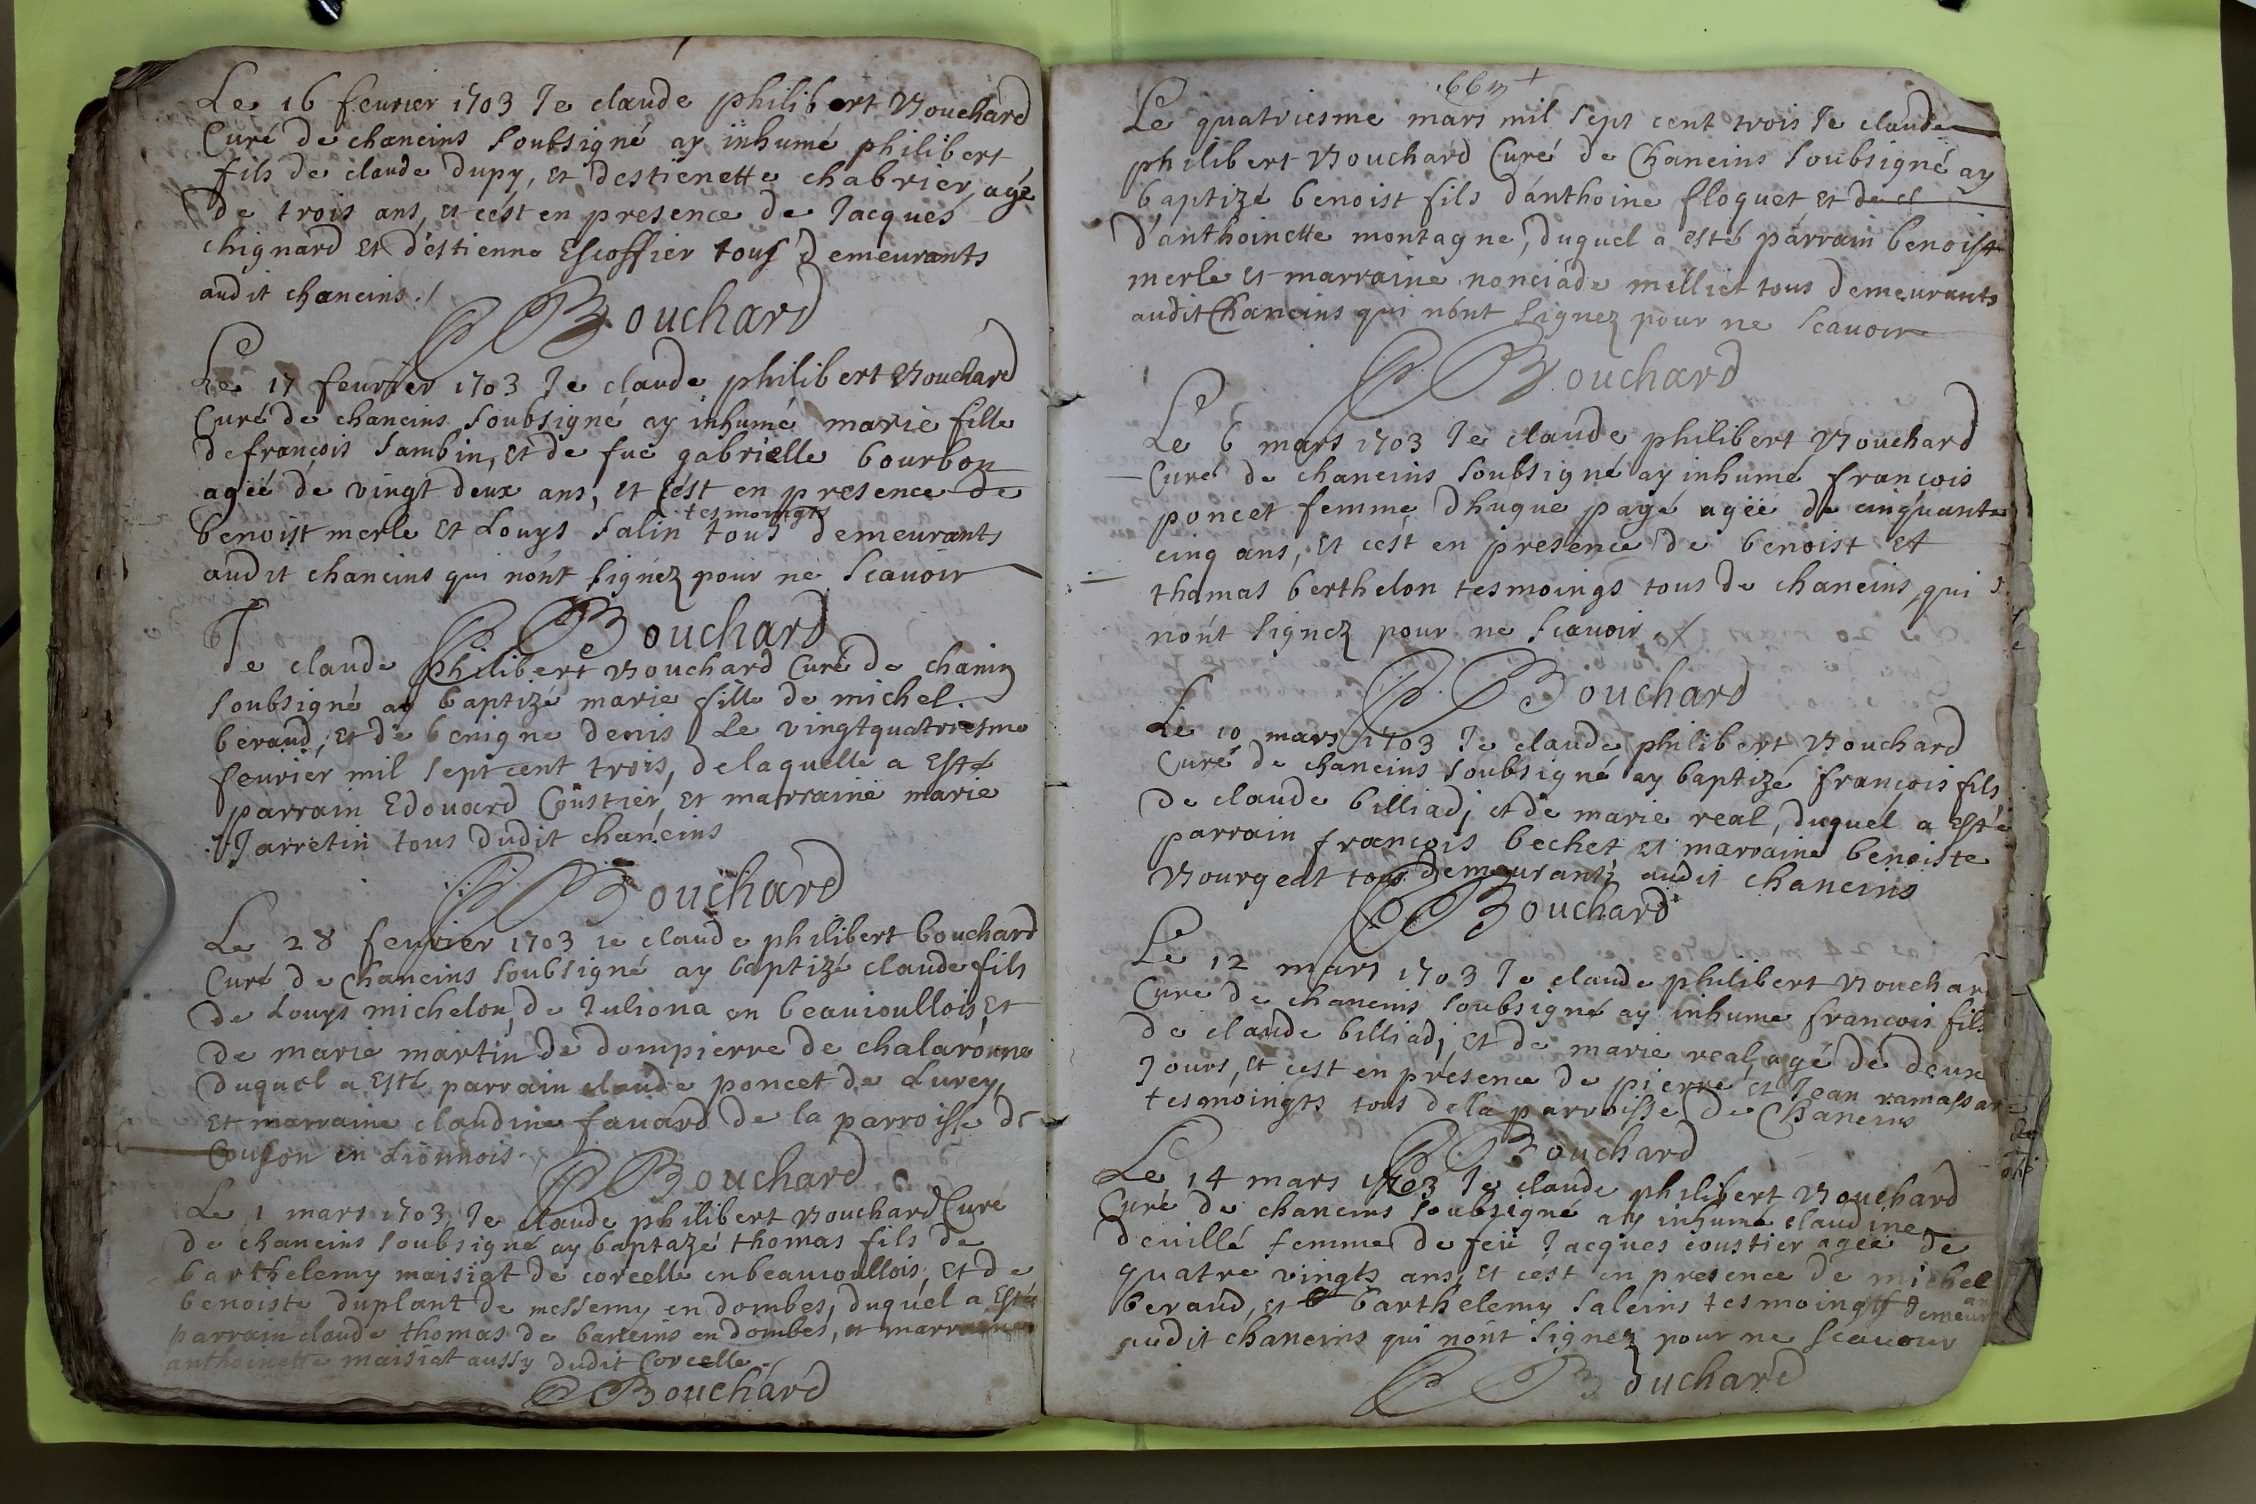 Le 16 feurier 1703 Je claude philibert Bouchard
Curé de chaneins soubsigné ay inhumé philibert
fils de claude dupy, et destienette chabrier agé
de trois ans, et cest en presence de Jacques
chignard et d'estienne Escoffier tous demeurants
audit chaneins ./
Bouchard
Le 17 feurier 1703 Je claude philibert Bouchard
Curé de chaneins soubsigné ay inhumé marie fille
de françois Sambin, et de fue gabrielle bourbon
ageé de vingt deux ans, et cest en presence de
tesmoingts
benoist merle et Louys Salin tous demeurants
audit chaneins qui nont signez pour ne scauoir
Bouchard
Je claude philibert Bouchard Curé de chanin
soubsigné ay baptizé marie fille de michel
beraud, et de benigne denis Le vingtquatriesme
feurier mil sept cent trois, delaquelle a esté
parrain Edouard Coustier, et marraine marie
Jarretin tous dudit chaneins
Bouchard
Le 28 feurier 1703 ie claude philibert bouchard
Curé de Chaneins soubsigné ay baptizé claude fils
de Louys michelon, de Juliona en beauioullois, et
de marie martin de dompierre de chalaronne
duquel a esté parrain claude poncet de Lurcy,
et marraine claudine fauard de la parroisse de
Couson en Lionnois
Bouchard
Le 1 mars 1703 Je claude philibert Bouchard Curé
de chaneins soubsigné ay baptazé thomas fils de
barthelemy maisiat de corcelle en beauioullois, et de
benoiste duplant de messemy en dombes, duquel a esté
parrain claude thomas de baneins en dombes, et marraine
anthoinette maisiat aussy dudit Corcelle
Bouchard
Le quatriesme mars mil sept cent trois Je claude
philibert Bouchard Curé de Chaneins soubsigné ay
baptizé benoist fils d'anthoine floquet et de
d'anthoinette montagne, duquel a esté parrain benoist
merle et marraine nonciade milliet tous demeurants
audit Chaneins qui nont signez pour ne scauoir
Bouchard
Le 6 mars 1703 Je claude philibert Bouchard
Curé de chaneins soubsigné ay inhumé françois
poncet femme d'hugue pagé ageé de cinquante
cinq ans, et cest en presence de benoist et
thomas berthelon tesmoings tous de chaneins, qui
nont signez pour ne scauoir ./
Bouchard
Le 10 mars 1703 Je claude philibert Bouchard
Curé de chaneins soubsigné ay baptizé françois fils
de claude billiad, et de marie real, duquel a esté
parrain françois bechet et marraine benoiste
Bourgeat tous demeurants audit chaneins
Bouchard
Le 12 mars 1703 Je claude philibert Bouchard
Curé de chaneins soubsigné ay inhumé francois fils
de claude billiad, et de marie real, agé de deux
Jours, et cest en presence de pierre et Jean ramassar
tesmoingts tous dela parroisse de Chaneins
Bouchard
Le 14 mars 1703 Je claude philibert Bouchard
Curé de chaneins soubsigné ay inhumé claudine
deuillé femme de feü Jacques coustier ageé de
quatre vingts ans, et cest en presence de michel
beraud, et barthelemy Saleins tesmoingts demeur
audit chaneins qui nont signez pour ne scauoir
Bouchard